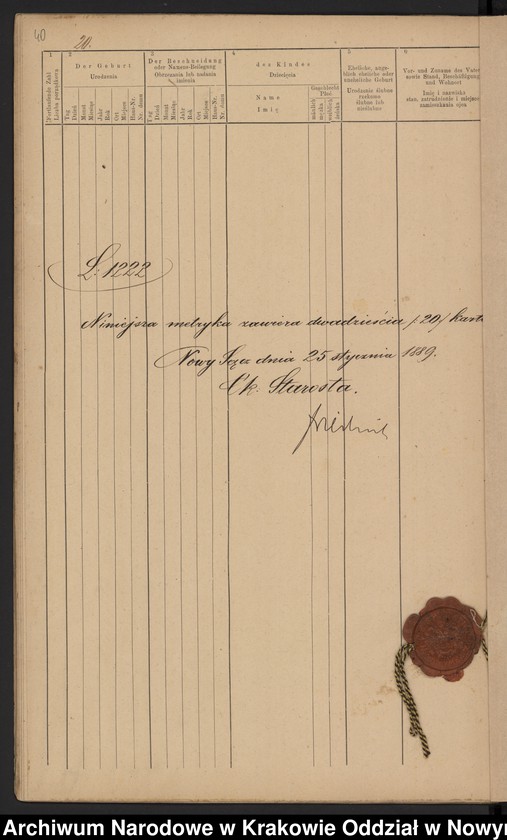 40
20.
1 2 3 4 5 6
Fortlaufende Zahl
Liczba porządkowa
Der Geburt
Urodzenia
Tag
Dzień
Monat
Miesiąc
Jahr
Rok
Ort
Miejsce
Haus-Nr.
Nr. domu
Der Beschneidung
oder Namens-Beilegung
Obrzezania lub nadania
imienia
Tag
Dzień
Monat
Miesiąc
Jahr
Rok
Ort
Miejsce
Haus-Nr.
Nr. domu
des Kindes
Dziecięcia
Name
Imię
Geschlecht
Płeć
männlich
męska
weiblich
żeńska
Eheliche, angeblich
eheliche oder
uneheliche Geburt
Urodzenie ślubne
rzekomo
ślubne lub
nieślubne
Vor- und Zuname des Vaters
sowie Stand, Beschäftigung
und Wohnort
Imię i nazwisko
stan, zatrudnienie i miejsce
zamieszkania ojca
L: 1222
Niniejsza metryka zawiera dwadzieścia /20/ kart
Nowy Sącz dnia 25 stycznia 1889.
C k. Starosta.
Archiwum Narodowe w Krakowie Oddział w Nowy